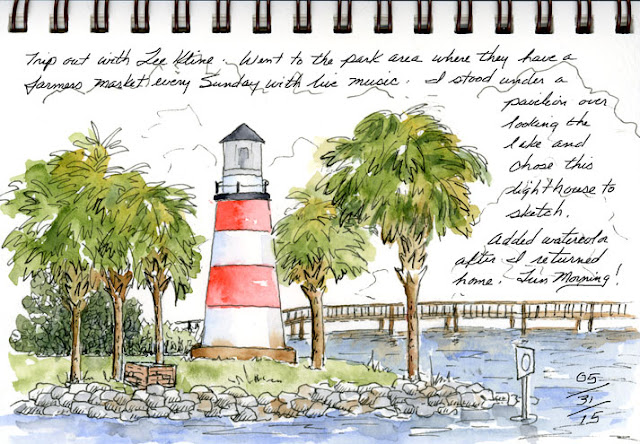 Trip out with Lee Kline. Went to the park area where they have a
farmers market every Sunday with live music. I stood under a
pavilion over
looking the
lake and
chose this
lighthouse to
sketch.
Added watercolor
after I returned
home. Fun Morning!
05
31
15